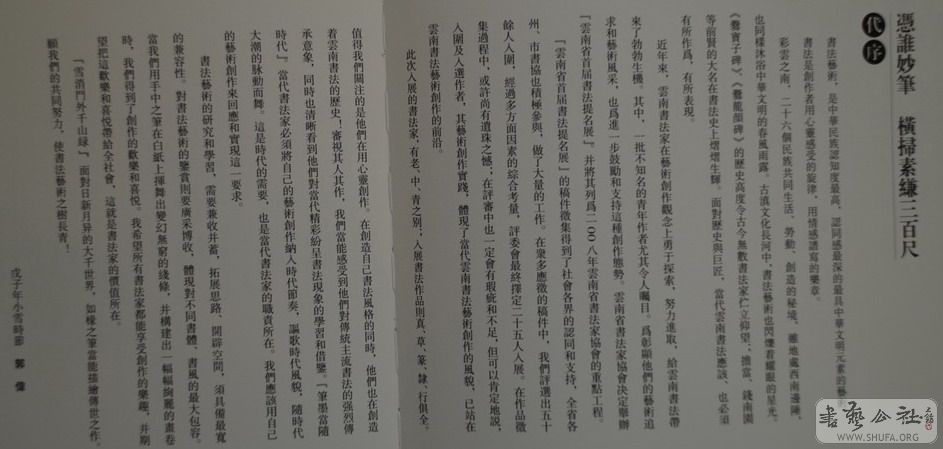 馮誰妙筆　橫掃素縑三百尺
代序
書法藝術，是中華民族認知度最高、認同感最深的最具中華文明元素的藝
書法是創作者用心靈感受的旋律，用情感譜寫的樂章。
彩雲之南，二十六個民族共同生活、勞動、創造的秘境，雖地處西南邊陲，
也同樣沐浴中華文明的春風雨露。古滇文化長河中，書法藝術也閃爍着耀眼的星光。
《爨寶子碑》、《爨龍顏碑》的歷史高度令古今無數書法家伫立仰望；擔當、錢南園
等前賢的大名在書法史上熠熠生輝。面對歷史與巨匠，當代雲南書法應該、也必須
有所作爲，有所表現。
近年來，雲南書法家在藝術創作觀念上勇于探索，努力進取，給雲南書法帶
來了勃勃生機。其中，一批不知名的青年作者尤其令人矚目。爲彰顯他們的藝術追
求和藝術風采，也爲進一步鼓勵和支持這種創作態勢。雲南省書法家協會决定舉辦
『雲南省首届書法提名展』，并將其列爲二〇〇八年雲南省書法家協會的重點工程。
『雲南省首届書法提名展』的稿件徵集得到了社會各界的認同和支持，全省各
州、市書協也積極參與，做了大量的工作。在衆多應徵的稿件中，我們評選出五十
餘人入圍，經過多方面因素的綜合考量，評委會最終擇定二十五人入展。在作品徵
集過程中，或許尚有遺珠之憾，在評審中也一定會有瑕疵和不足，但可以肯定地説，
入圍及入選作者，其藝術創作實踐，體現了當代雲南書法藝術創作的風貌，已站在
雲南書法藝術創作的前沿。
此次入展的書法家，有老、中、青之别；入展書法作品則真、草、篆、隸、行俱全。
值得我們關注的是他們在用心靈創作。在創造自己書法風格的同時，他們也在創造
着雲南書法的歷史！審視其人其作，我們當能感受到他們對傳統主流書法的强烈傳
承意象，同時也清晰看到他們對當代精彩紛呈書法現象的學習和借鑒。『筆墨當隨
時代』。當代書法家必須將自己的藝術創作納入時代節奏，謳歌時代風貌，隨時代
大潮的脉動而舞。這是時代的需要，也是當代書法家的職責所在。我們應該用自己
的藝術創作來回應和實現這一要求。
書法藝術的研究和學習，需要兼收并蓄，拓展思路、開辟空間，須具備最寬
的兼容性。對書法藝術的鑒賞則要廣采博收，體現對不同書體、書風的最大包容。
當我們用手中之筆在白紙上揮舞出變幻無窮的綫條，并構建出一幅幅絢麗的畫卷
時，我們得到了創作的歡樂和喜悦。我希望所有書法家都能享受創作的樂趣，并期
望把這歡樂和喜悦帶給全社會，這就是書法家的價值所在。
『雪消門外千山緑』。面對日新月异的大千世界，如椽之筆當能描繪傳世之作。
願我們的共同努力，使書法藝術之樹長青。
戊子年小雪時節　郭　偉
書藝公社
WWW.SHUFA.ORG